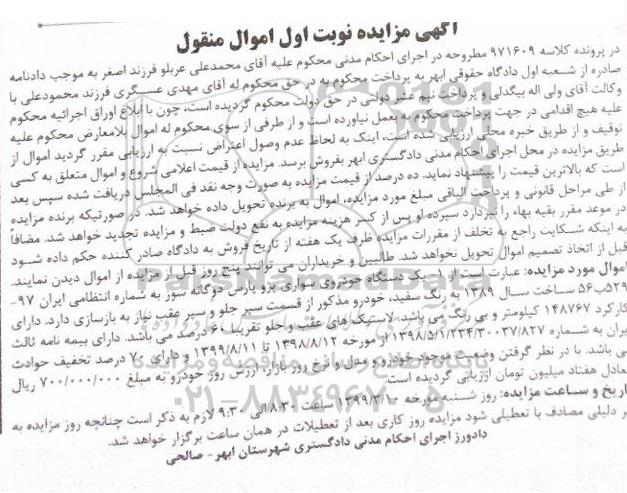 آگهی مزایده نوبت اول اموال منقول
در پرونده کلاسه ۹۷۱۶۰۹ مطروحه در اجرای احکام مدنی محکوم علیه آقای محمدعلی عربلو فرزند اصغر به موجب دادنامه
صادره از شعبه اول دادگاه حقوقی ابهر به پرداخت محکوم به در حق محکوم له آقای مهدی عسگری فرزند محمودعلی با
وکالت آقای ولی اله بیگدلی و پرداخت نیم عشر دولتی در حق دولت محکوم گردیده است، چون با ابلاغ اوراق اجرائیه محکوم
علیه هیچ اقدامی در جهت پرداخت محکوم به بعمل نیاورده است و از طرفی از سوی محکوم له اموال بلامعارض محکوم علیه
توقیف و از طریق خبره محلی ارزیابی شده است، اینک به لحاظ عدم وصول اعتراض نسبت به ارزیابی مقرر گردید اموال از
طریق مزایده در محل اجرای احکام مدنی دادگستری ابهر بفروش برسد. مزایده از قیمت اعلامی شروع و اموال متعلق به کسی
است که بالاترین قیمت را پیشنهاد نماید. ده درصد از قیمت مزایده به صورت وجه نقد فی المجلس دریافت شده سپس بعد
از طی مراحل قانونی و پرداخت الباقی مبلغ مورد مزایده، اموال به برنده تحویل داده خواهد شد. در صورتیکه برنده مزایده
در موعد مقرر بقیه بهاء را نپردازد سپرده او پس از کسر هزینه مزایده به نفع دولت ضبط و مزایده تجدید خواهد شد. مضافاً
به اینکه شکایت راجع به تخلف از مقررات مزایده ظرف یک هفته از تاریخ فروش به دادگاه صادر کننده حکم داده شود
قبل از اتخاذ تصمیم اموال تحویل نخواهد شد. طالبین و خریداران می توانند پنج روز قبل از مزایده از اموال دیدن نمایند.
اموال مورد مزایده: عبارت است از ۱- یک دستگاه خودروی سواری پژو پارس دوگانه سوز به شماره انتظامی ایران ۹۷-
۵۲۹ب۵۶ ساخت سال ۱۳۸۹ به رنگ سفید، خودرو مذکور از قسمت سپر جلو و سپر عقب نیاز به بازسازی دارد. دارای
کارکرد ۱۴۸۷۶۷ کیلومتر و بی رنگ می باشد. لاستیک های عقب و جلو تقریبا ۶۰ درصد می باشد. دارای بیمه نامه ثالث
ایران به شماره ۱۳۹۸/۵/۱/۲۳۴/۳۰۰۳۷/۸۲۷ از مورخه ۱۳۹۸/۸/۱۲ تا ۱۳۹۹/۸/۱۱ و دارای ۷۰ درصد تخفیف حوادث
می باشد. با در نظر گرفتن وضعیت موجود خودرو و مدل و نرخ روز بازار، ارزش روز خودرو به مبلغ ۷۰۰/۰۰۰/۰۰۰ ریال
معادل هفتاد میلیون تومان ارزیابی گردیده است.
تاریخ و ساعت مزایده: روز شنبه مورخه ۱۳۹۹/۳/۱۰ ساعت ۸:۳۰ الی ۹:۳۰ لازم به ذکر است چنانچه روز مزایده به
هر دلیلی مصادف با تعطیلی شود مزایده روز کاری بعد از تعطیلات در همان ساعت برگزار خواهد شد.
دادورز اجرای احکام مدنی دادگستری شهرستان ابهر- صالحی
۰۲۱-۸۸۳۴۹۶۷۰-۵